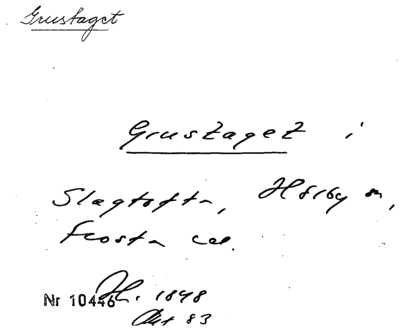 Grustaget
Grustaget i
Slagtofta, Hörby sn,
Frosta
Nr 10446 1898
83